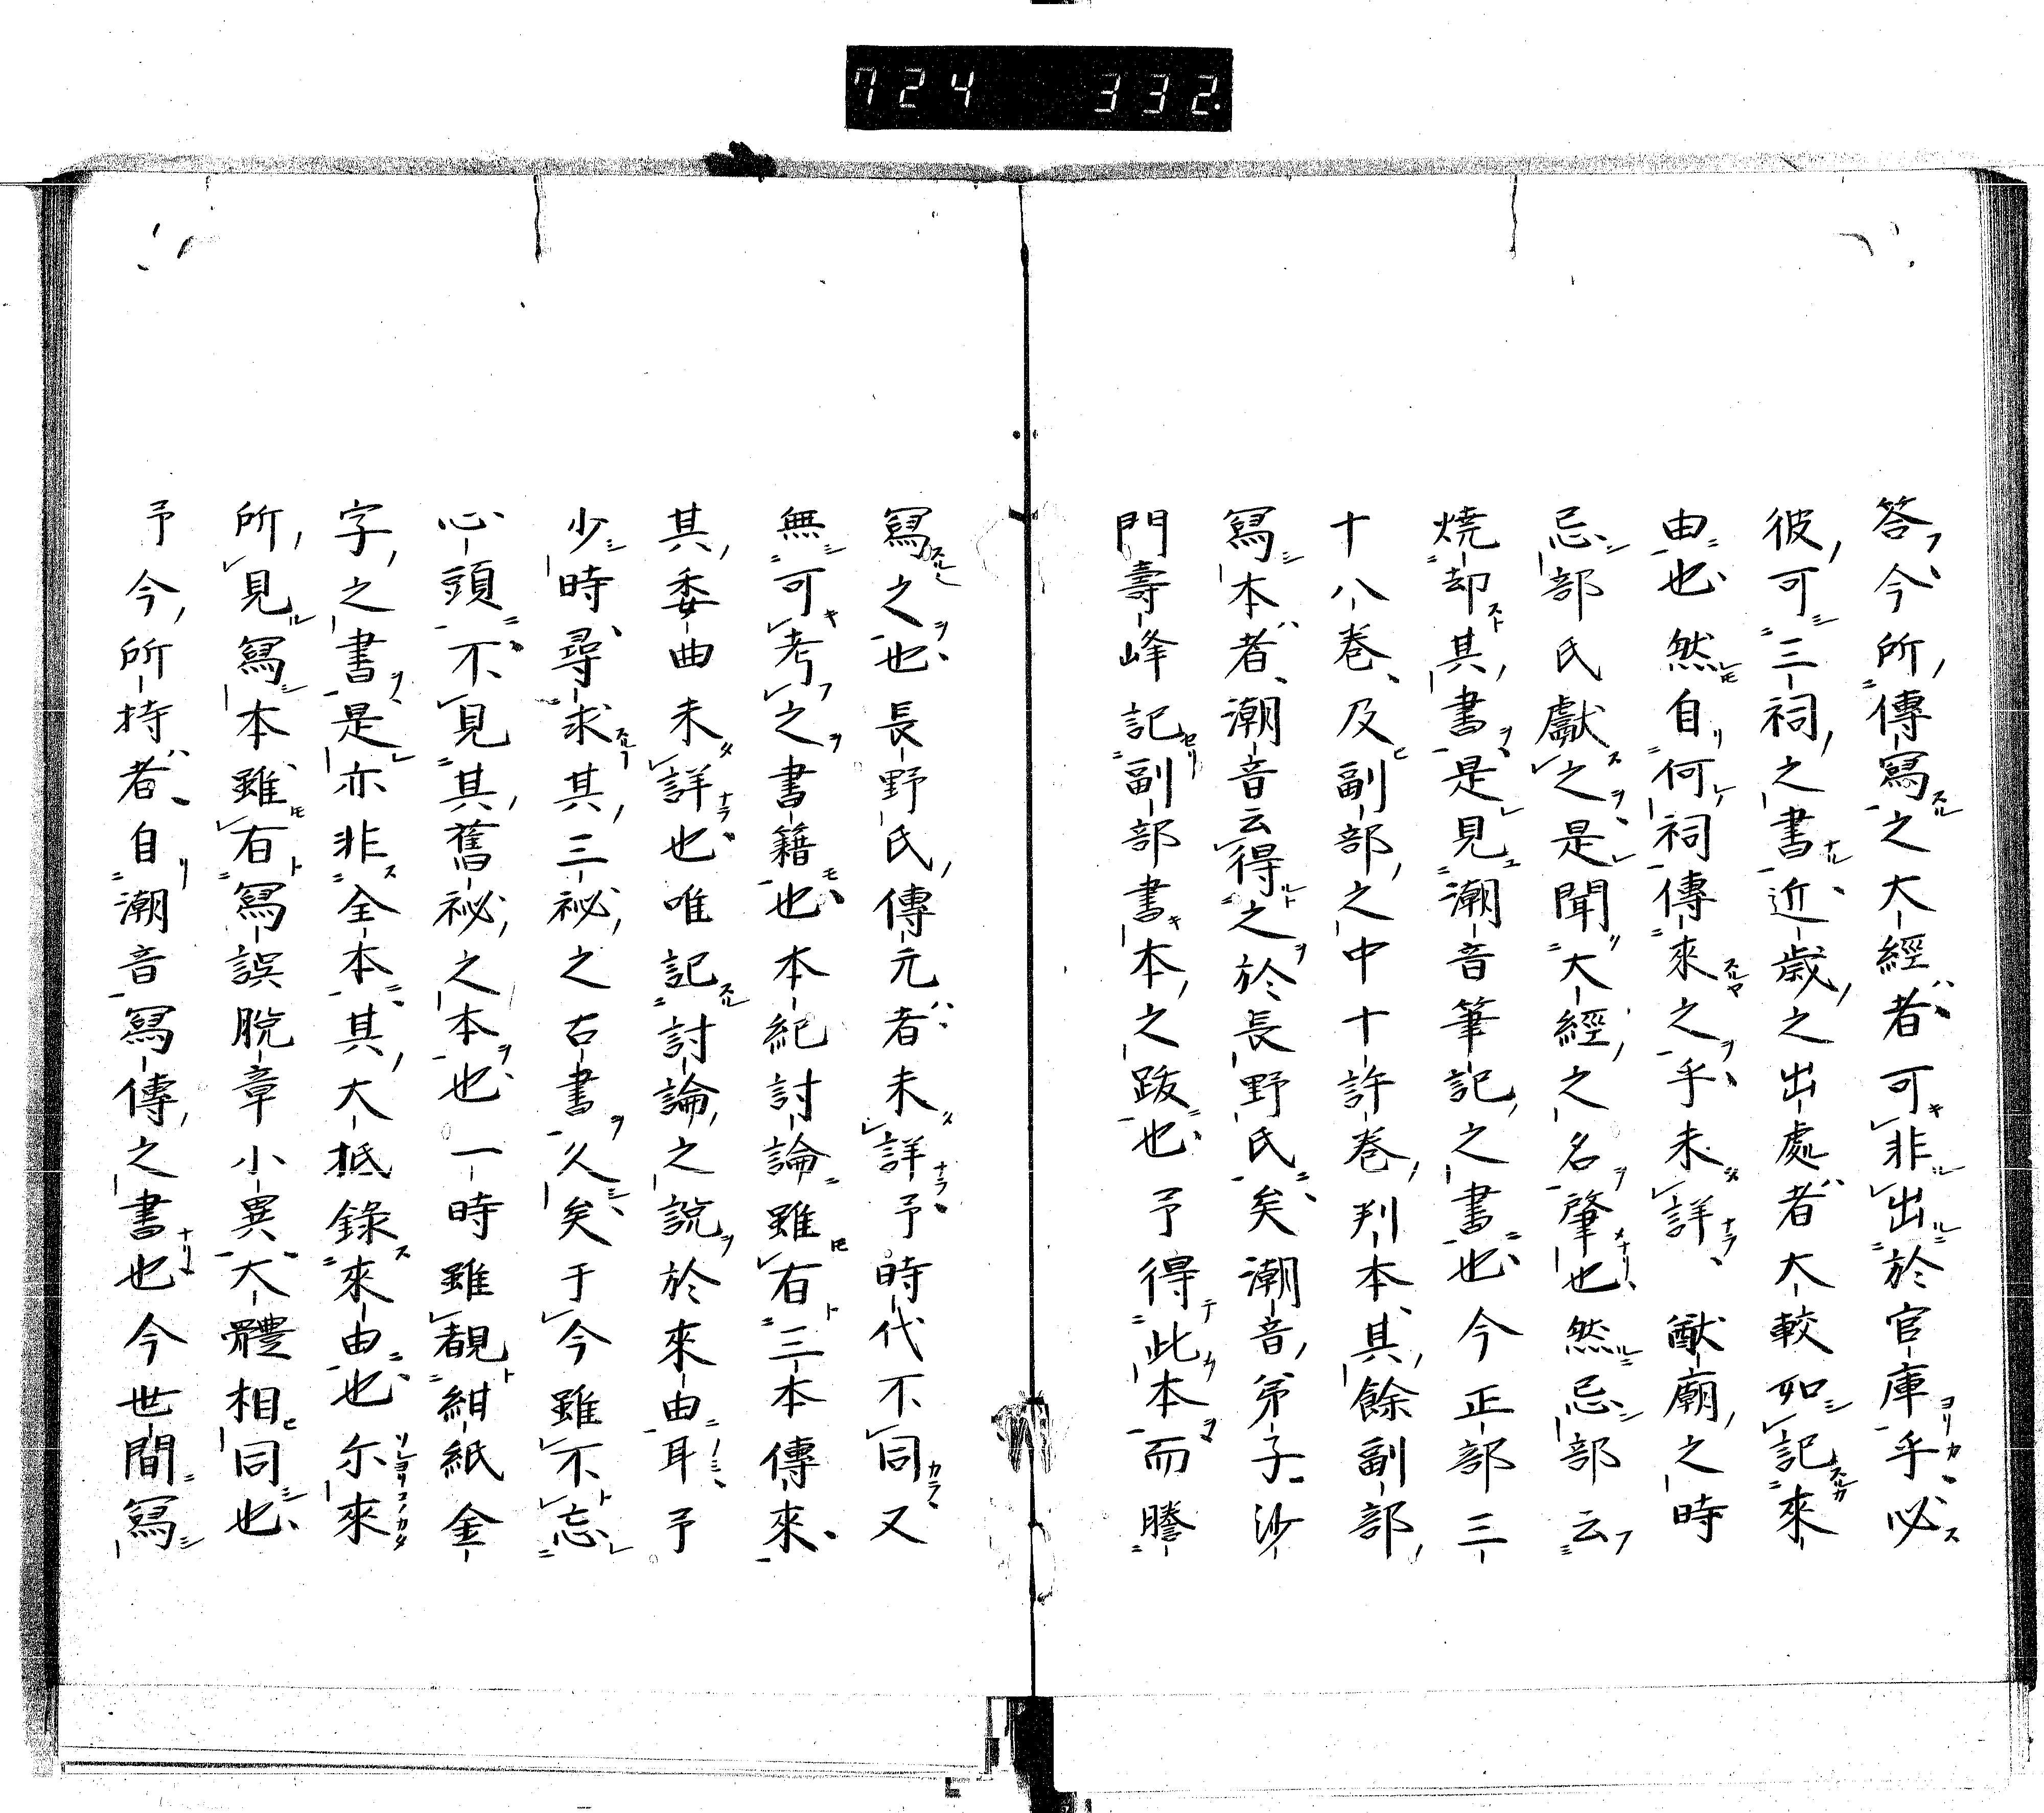 724 332.
答今所傳寫之大經者可非出於官庫乎必
彼可三祠之書近歳之出處者大較如記來
由也然自何祠傳來之乎未詳 猷廟之時
忌部氏獻之是聞大經之名肇也然忌部云
燒却其書是見潮音筆記之書也今正部三
十八卷及副部之中十許卷判本其餘副部
寫本者潮音云得之於長野氏矣潮音弟子沙
門壽峰記副部書本之跋也予得此本而謄
寫之也長野氏傳元者未詳予時代不同又
無可考之書籍也本紀討論雖有三本傳來
其委曲未詳也唯記討論之説於來由耳予
少時尋求其三祕之古書久矣于今雖不忘
心頭不見其舊祕之本也一時雖覩紺紙金
字之書是亦非全本其大抵錄來由也尓來
所見寫本雖有寫誤脱章小異大體相同也
予今所持者自潮音寫傳之書也今世間寫